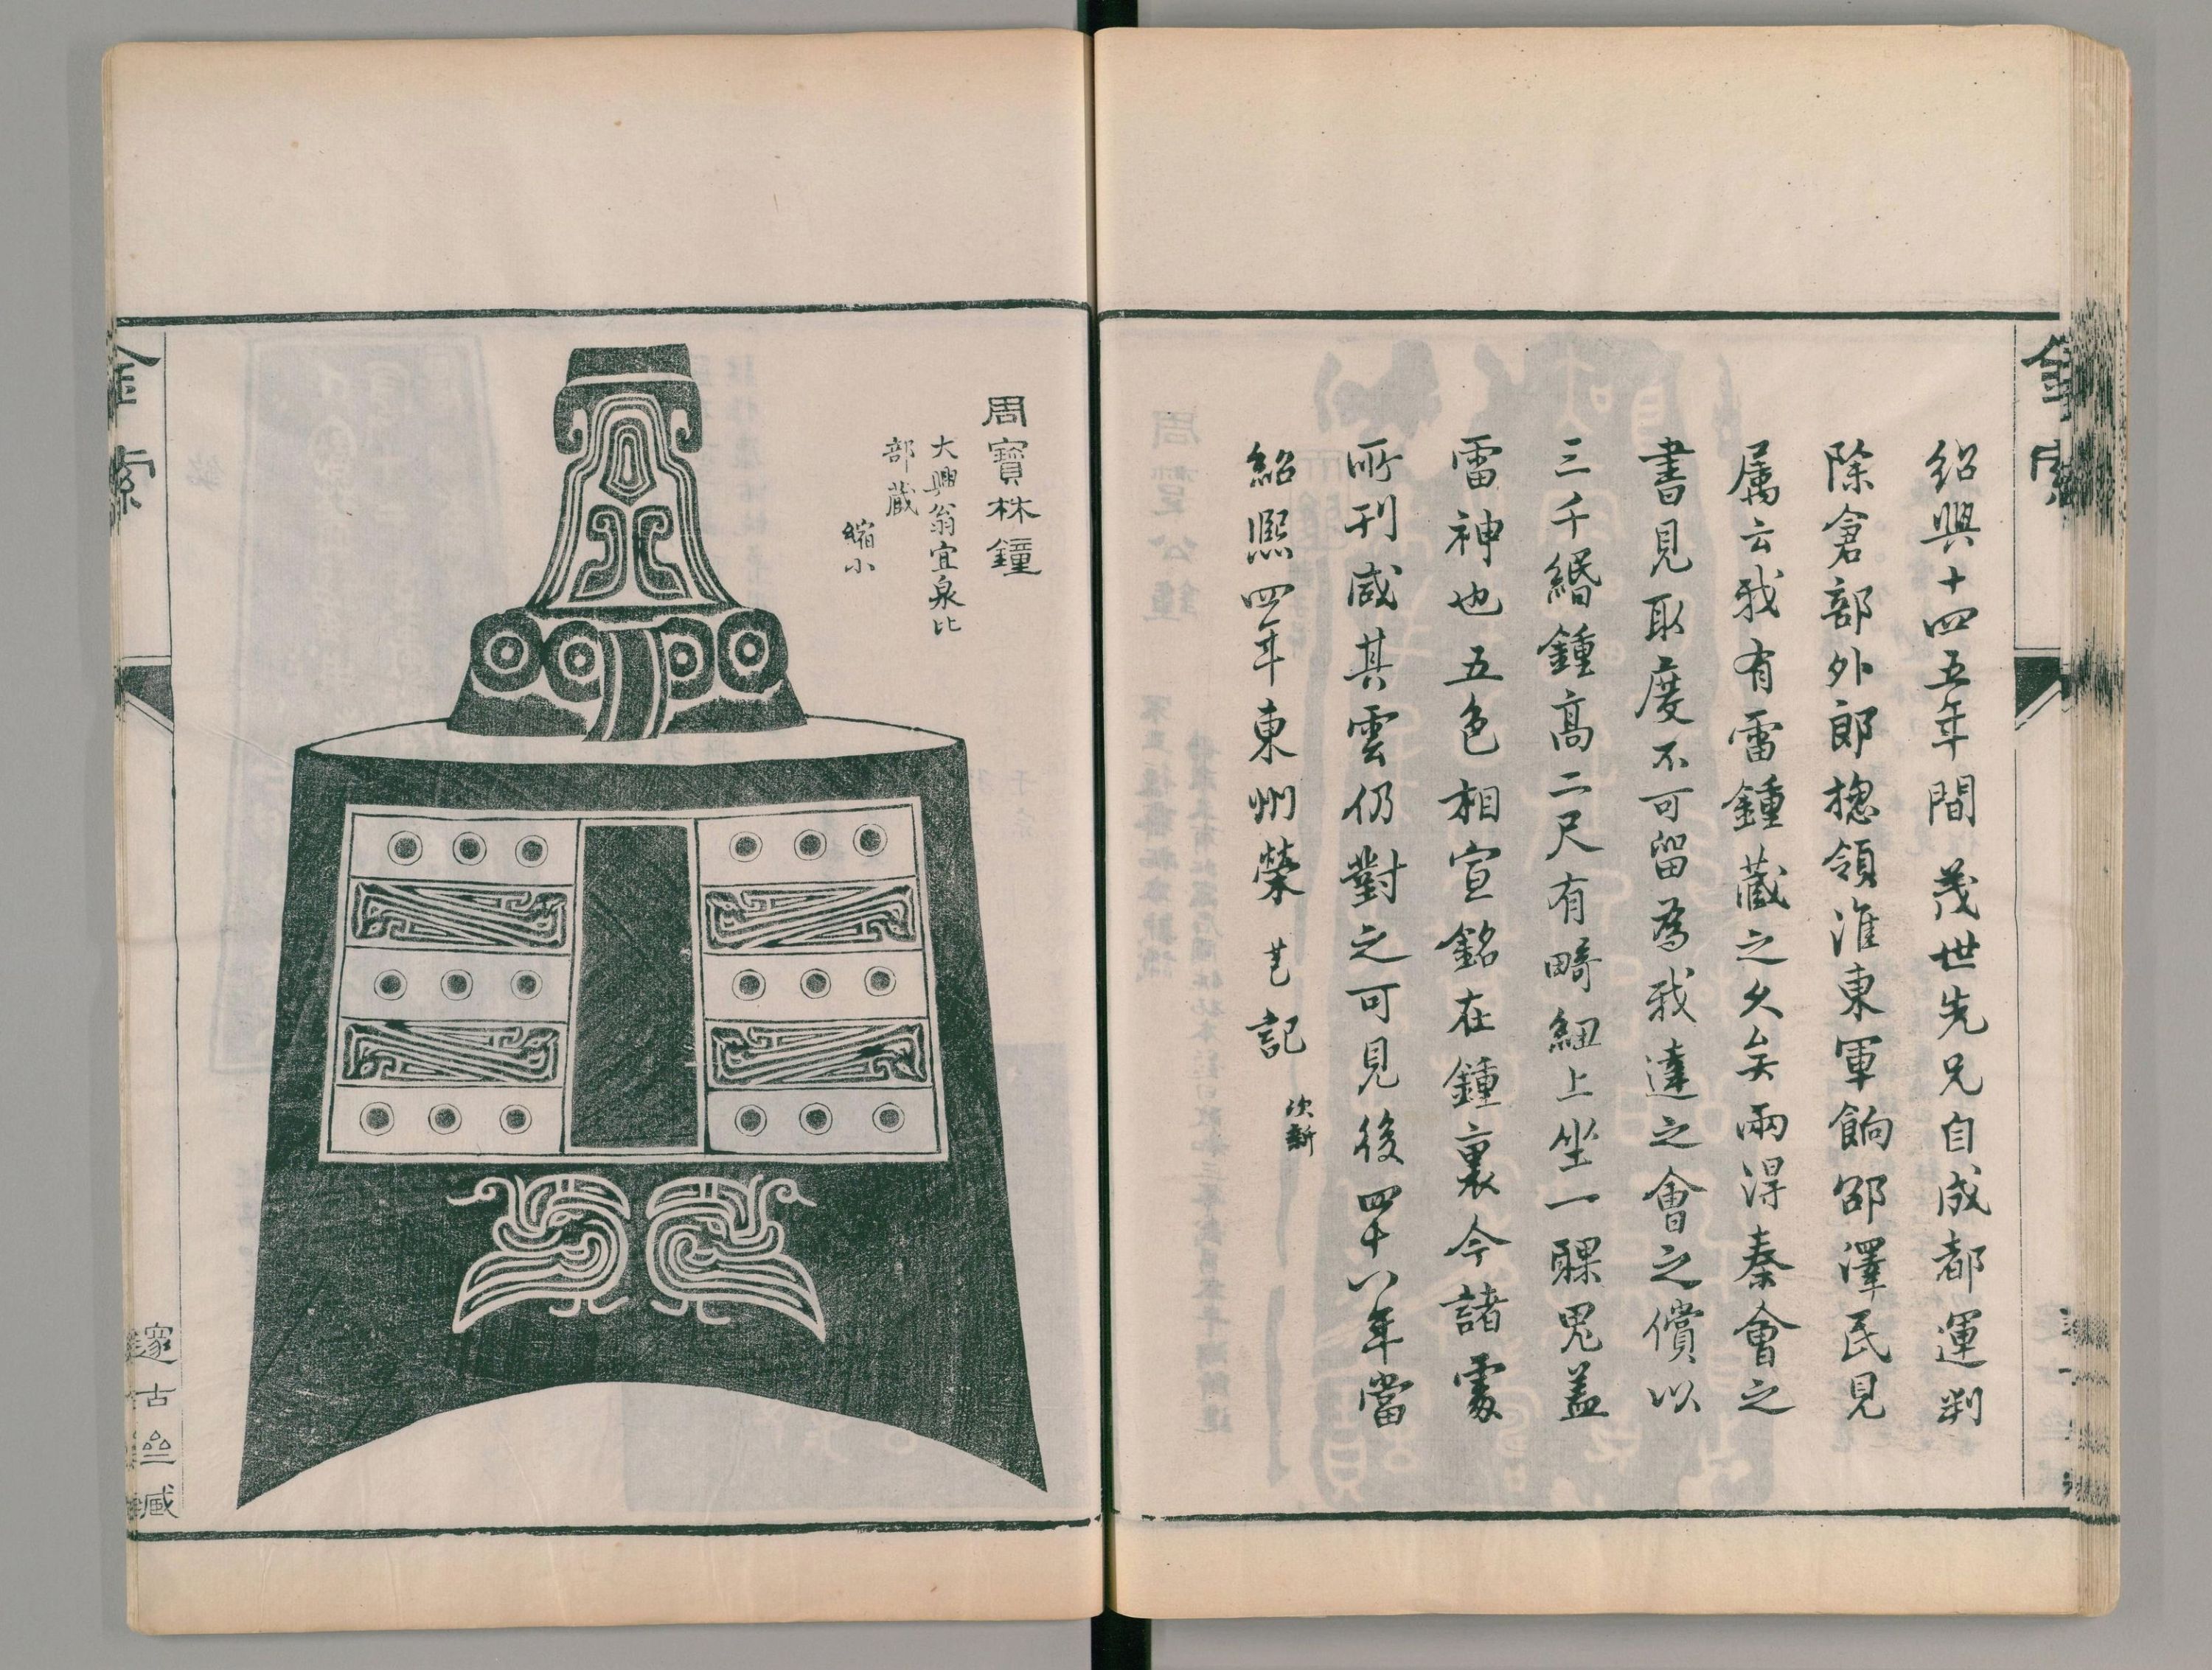 金索
紹興十四五年間茂世先兄自成都運判
除倉部外郎揔領淮東軍餉邵澤民見
属云我有雷鍾藏之久矣兩淂秦會之
書見取度不可留為我達之會之償以
三千緡鍾高二尺有畸紐上坐一髁鬼盖
雷神也五色相宣銘在鍾裏今諸處
所刊咸其雲仍對之可見後四十八年當
紹熙四年東州榮芑記
次新
周寶林鐘
大興翁宜泉比
部藏
縮小
金索
邃古亝臧